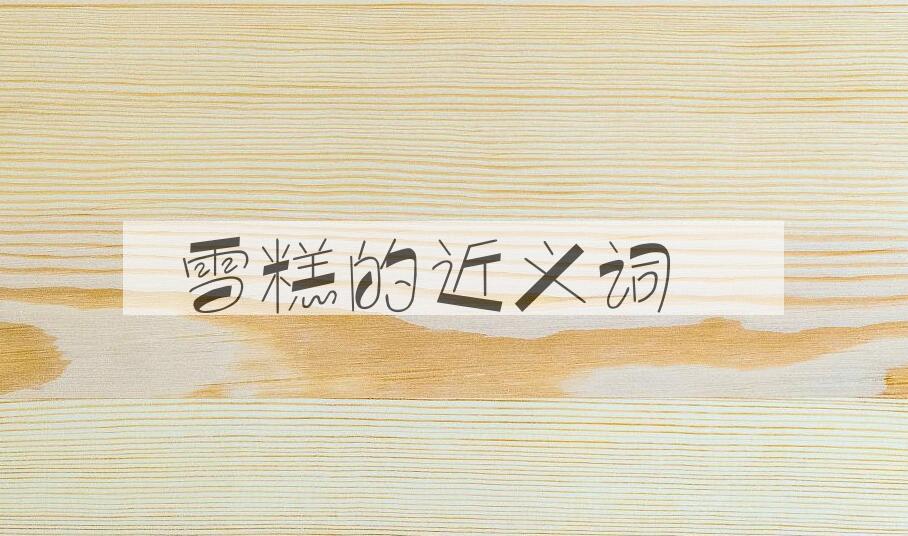 雪糕的近义词